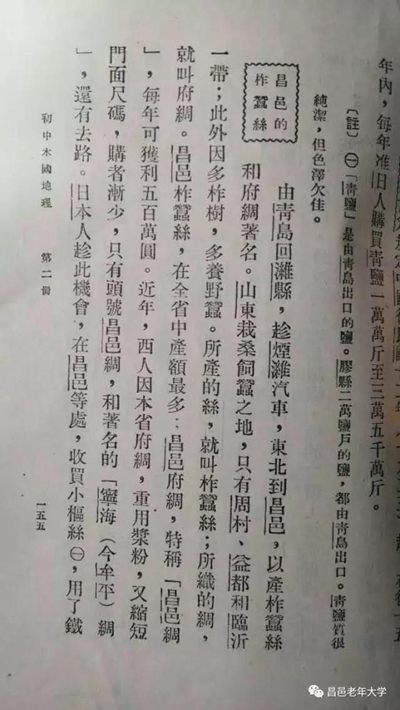 年內，每年准日人購買青鹽一萬萬斤至三萬五千萬斤。
〔註〕㊀「青鹽」是由青島出口的鹽。膠縣二萬鹽戶的鹽，都由青島出口。青鹽質很
純潔，但色澤欠佳。
昌邑的
柞蠶絲
由青島回濰縣，趁煙濰汽車，東北到昌邑，以產柞蠶絲
和府綢著名。山東栽桑飼蠶之地，只有周村、益都和臨沂
一帶；此外因多柞樹，多養野蠶。所產的絲，就叫柞蠶絲；所織的綢，
就叫府綢。昌邑柞蠶絲，在全省中產額最多；昌邑府綢，特稱「昌邑綢
」，每年可獲利五百萬圓。近年，西人因本省府綢，重用漿粉，又縮短
門面尺碼，購者漸少，只有頭號昌邑綢，和著名的「寧海（今牟平）綢
」，還有去路。日本人趁此機會，在昌邑等處，收買小樞絲㊀，用了鐵
初中本國地理　第二冊　一五五
昌邑老年大学